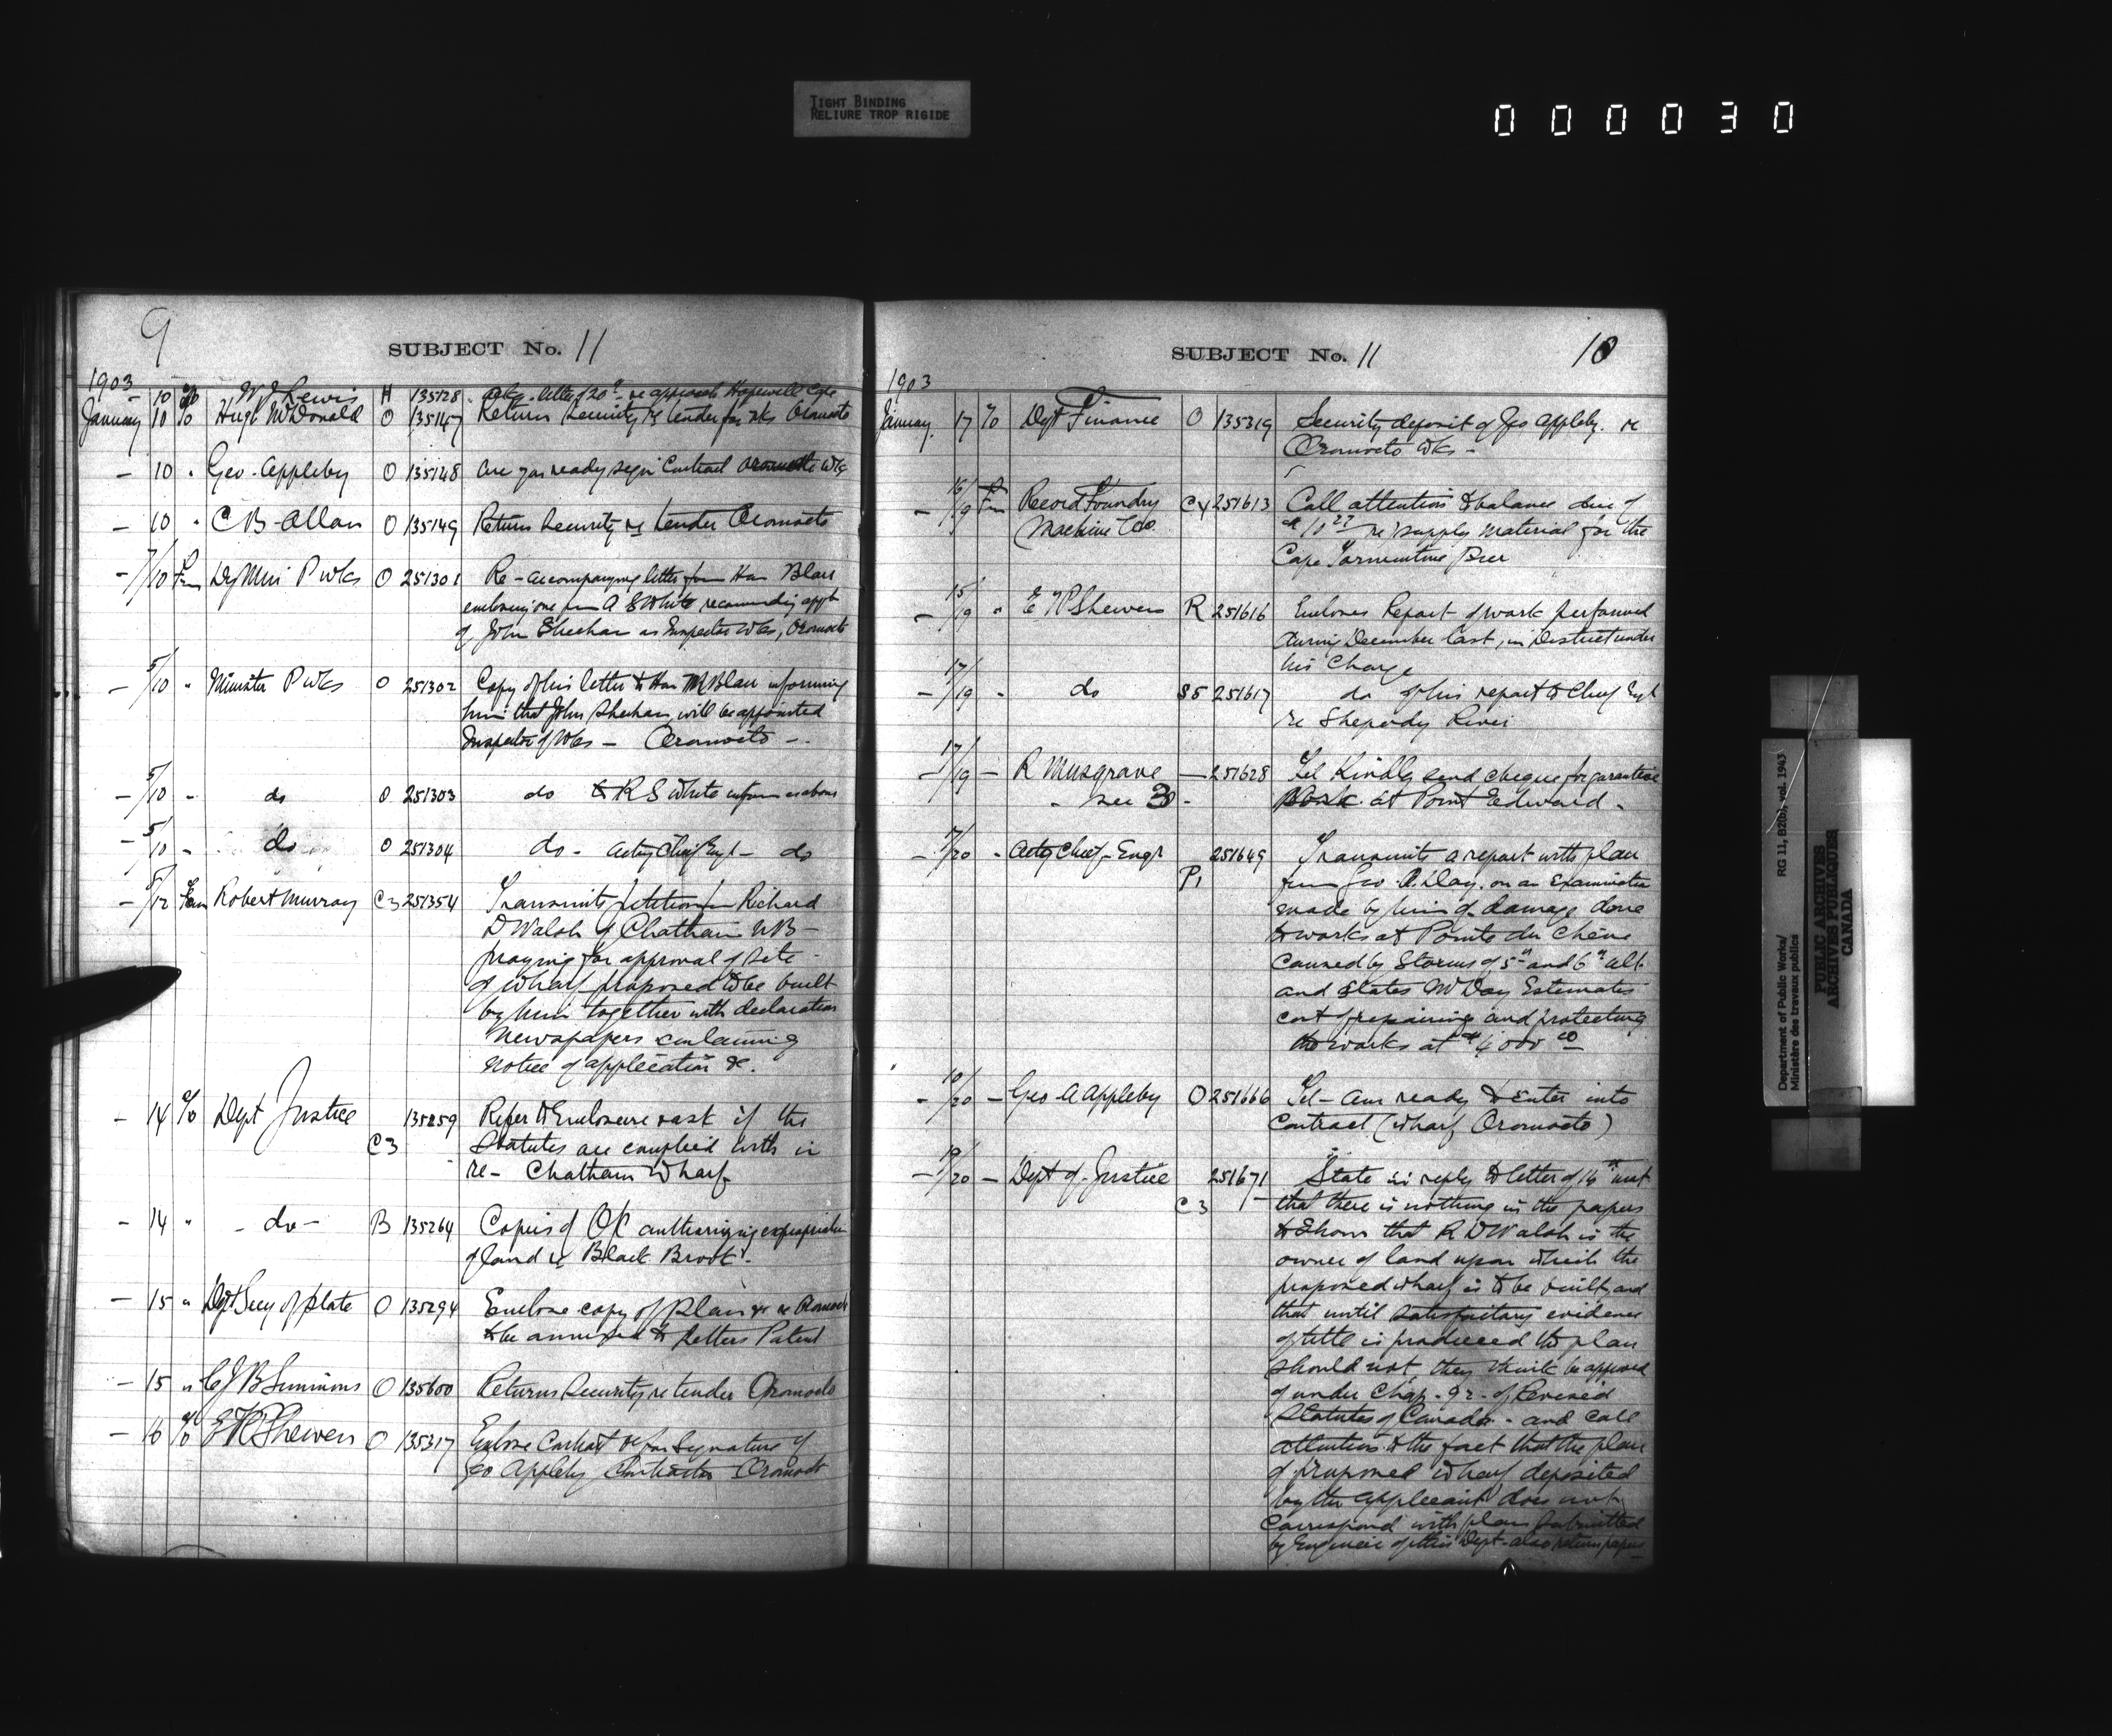 TIGHT BINDING
RELIURE TROP RIGIDE
000030
9
SUBJECT No. 11
1903
10 W J Lewis H 135128 letter 20th re approach Hopewell Cape
January 10 To Hugh McDonald O 135147 Return Security re tender for wks Oromocto
— 10 " Geo. Appleby O 135148 are you ready sign Contract Oromocto wks
— 10 " C B Allan O 135149 Return Security re tender Oromocto
— 7/10 Fm Dy Min P Wks O 251301 Re-accompanying letter from Hon Blair
enclosing one from A S White recommending appt
of John Sheehan as Inspector wks, Oromocto
— 5/10 " Minister P Wks O 251302 Copy of his letter to Hon Mr Blair informing
him that John Sheehan will be appointed
Inspector of Wks — Oromocto —.
— 5/10 " do O 251303 do to R S White inform as above
— 5/10 " do O 251304 do - Actg Chief Engr — do
— 8/12 Fm Robert Murray C3 251354 Transmits petition from Richard
D Walsh of Chatham NB —
praying for approval of site
of wharf proposed to be built
by him together with declaration
Newspapers containing
notice of application &c.
— 14 To Dept Justice 135259 Refer to Enclosure & ask if the
C3 Statutes are complied with in
re — Chatham Wharf
— 14 " — do — B 135264 Copies of OC authorizing expropriation
of land re Black Brook.
— 15 " Dept Secy of State O 135294 Enclose copy of plan &c re Oromocto
to be annexed to Letters Patent
— 15 " C J B Simmons O 135600 Returns Security re tender Oromocto
— 16 To E T P Shewen O 135317 Enclose Contract &c for Signature of
Geo Appleby Contractor Oromocto
SUBJECT No. 11
10
1903
January 17 To Dept Finance O 135319 Security deposit of Geo Appleby. re
Oromocto Wks —
— 16/19 Fm Record Foundry C4 251613 Call attention to balance due of
Machine Co. re supply material for the
Cape Tormentine Pier
— 15/19 " E T P Shewen R 251616 Encloses Report of work performed
during December last, in District under
his Charge
— 17/19 " do S5 251617 do of his report to Chief Engr
re Shepody River
— 17/19 — R Musgrave — 251628 Tel Kindly send cheque for guarantee
" see 30 " Work at Point Edward —
— 7/20 " Actg Chief Engr 251649 Transmits a report with plan
P1 from Geo A. Day. on an Examination
made by him of damage done
to works at Pointe du Chêne
caused by Storms of 5th and 6th ult
and states Mr Day Estimates
cost of repairing and protecting
the works at $4000 00
— 10/20 — Geo A Appleby O 251666 Tel — am ready to Enter into
Contract (wharf Oromocto)
— 19/20 — Dept of Justice 251671 State in reply to letter of 14th inst
C3 that there is nothing in the papers
to Show that R D Walsh is the
owner of land upon which the
proposed wharf is to be built, and
that until satisfactory evidence
of title is produced the plan
should not, they think be approved
of under Chap. 92. of Revised
Statutes of Canada - and call
attention to the fact that the plan
of proposed wharf deposited
by the applicant does not
correspond with plan submitted
by Engineer of this Dept — also return papers
Department of Public Works/
Ministère des travaux publics
RG 11, B2(b), vol. 1943
PUBLIC ARCHIVES
ARCHIVES PUBLIQUES
CANADA